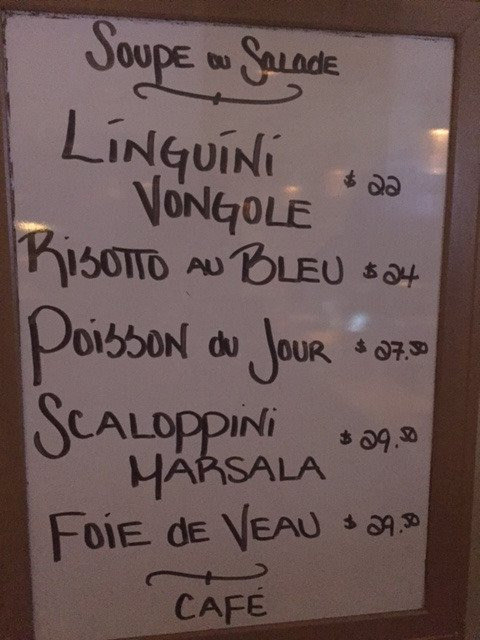 SOUPE OU SALADE
LINGUINI
VONGOLE $22
RISOTTO AU BLEU $24
POISSON DU JOUR $27.50
SCALOPPINI
MARSALA $29.50
FOIE DE VEAU $29.50
CAFÉ